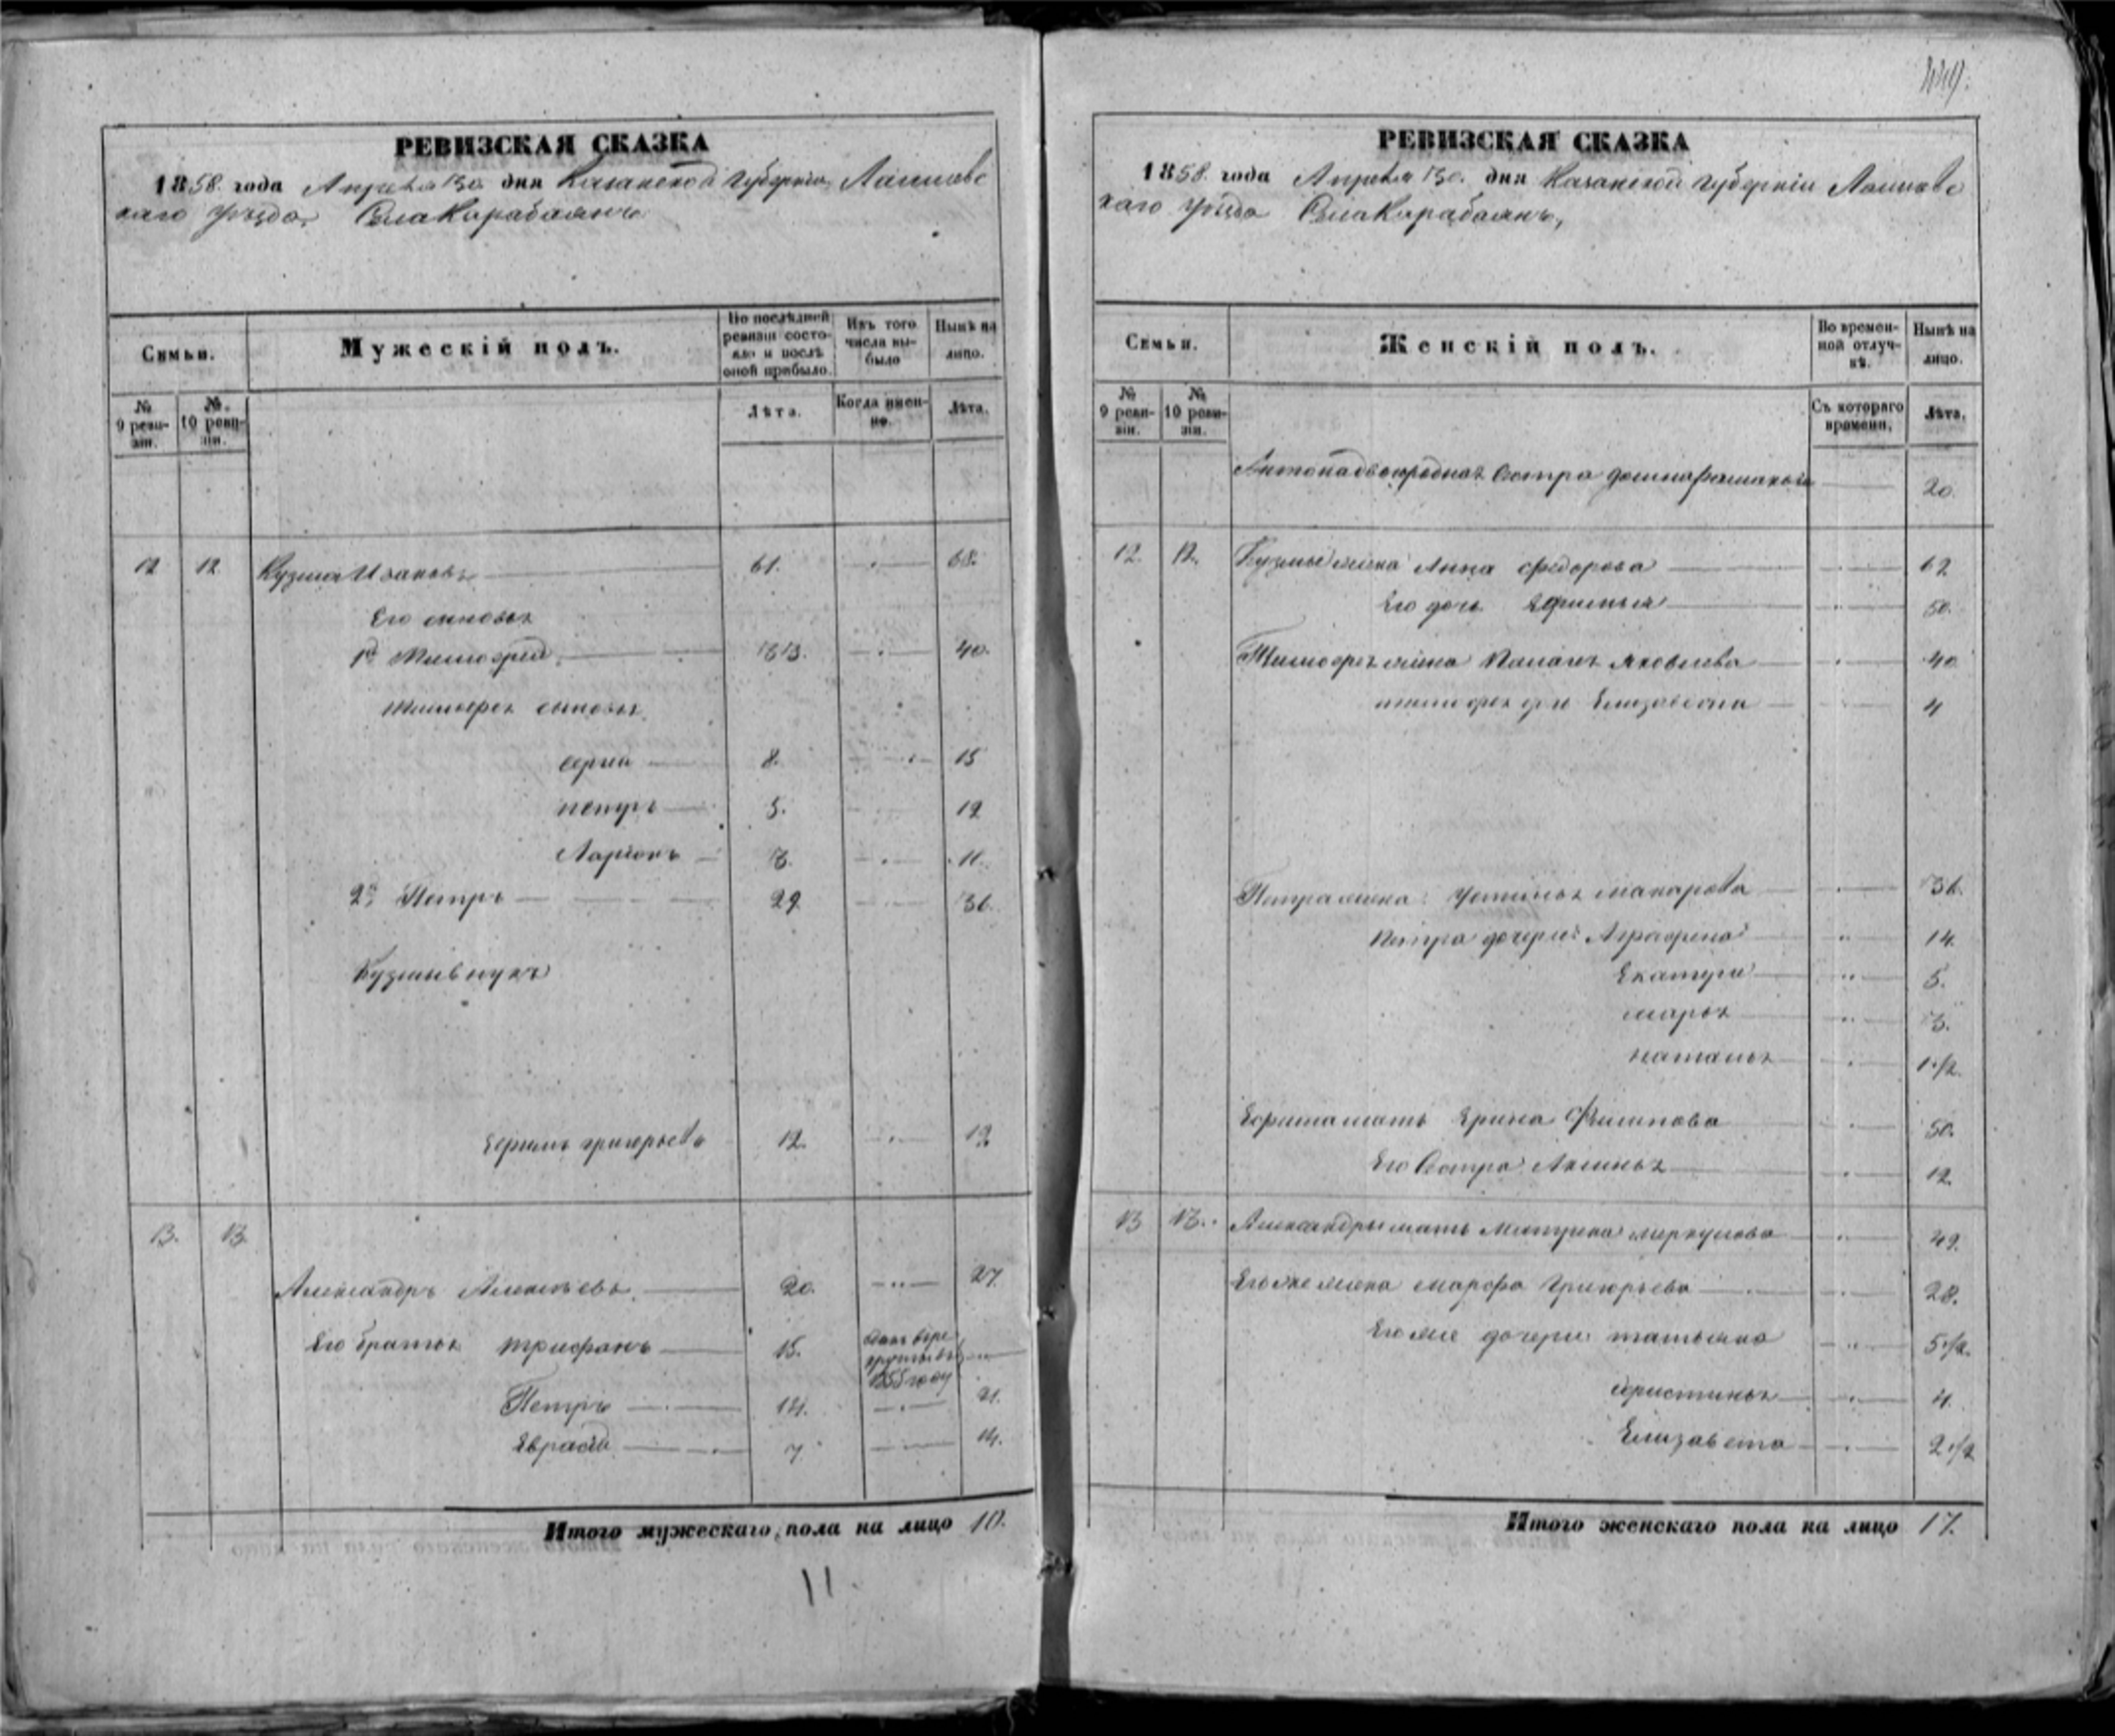 РЕВИЗСКАЯ СКАЗКА
1858. года Апреля 30. дня Казанской губерніи Лаишевс
каго уѣзда, Села Карабаянъ
Семьи.
Мужескій полъ.
По послѣдней ревизіи состояло и послѣ оной прибыло.
Изъ того числа выбыло
Нынѣ на лицо.
№ 9 ревизіи.
№. 10 ревизіи.
Лѣта.
Когда именно.
Лѣта.
12 12 Кузма Ивановъ 61. 68.
Его сыновья
1й Тимофей 33. 40.
Тимофея сыновья
сергей 8. 15
петръ 5. 12
Ларіонъ 3. 11.
2й Петръ 29 36.
Кузмы внукъ
Ефимъ григорьевъ 12. 19
13. 13.
Александръ Алексѣевъ 20. 27.
Его братья трифонъ 15.
1855 году
Петръ 14. 21.
7. 14.
Итого мужескаго пола на лицо 10.
11
449.
РЕВИЗСКАЯ СКАЗКА
1858. года Апреля 30. дня Казанской губерніи Лаишевс
каго уѣзда Села Карабаянъ,
Семьи.
Женскій полъ.
Во временной отлучкѣ.
Нынѣ на лицо.
№ 9 ревизіи.
№ 10 ревизіи.
Съ котораго времени.
Лѣта.
двоюродная сестра 20.
12. 12. Кузмы жена Анна федорова 62
Его дочь Ефимья 50.
Тимофея жена Яковлева 40
тимофея дочь Елизавета 4
Петра жена Устинья макарова 36.
Петра дочери Аграфена 14.
Екатери 5.
марья 3.
наталья 1 1/2.
Ефима мать Ирина Филипова 50.
Его Сестра Акинья 12.
13 13. Александры мать меркулова 49.
Его же жена марфа Григорьева 28.
Его же дочери татьяна 5 1/2.
фристинья 4.
Елизавета 2 1/2
Итого женскаго пола на лицо 17.